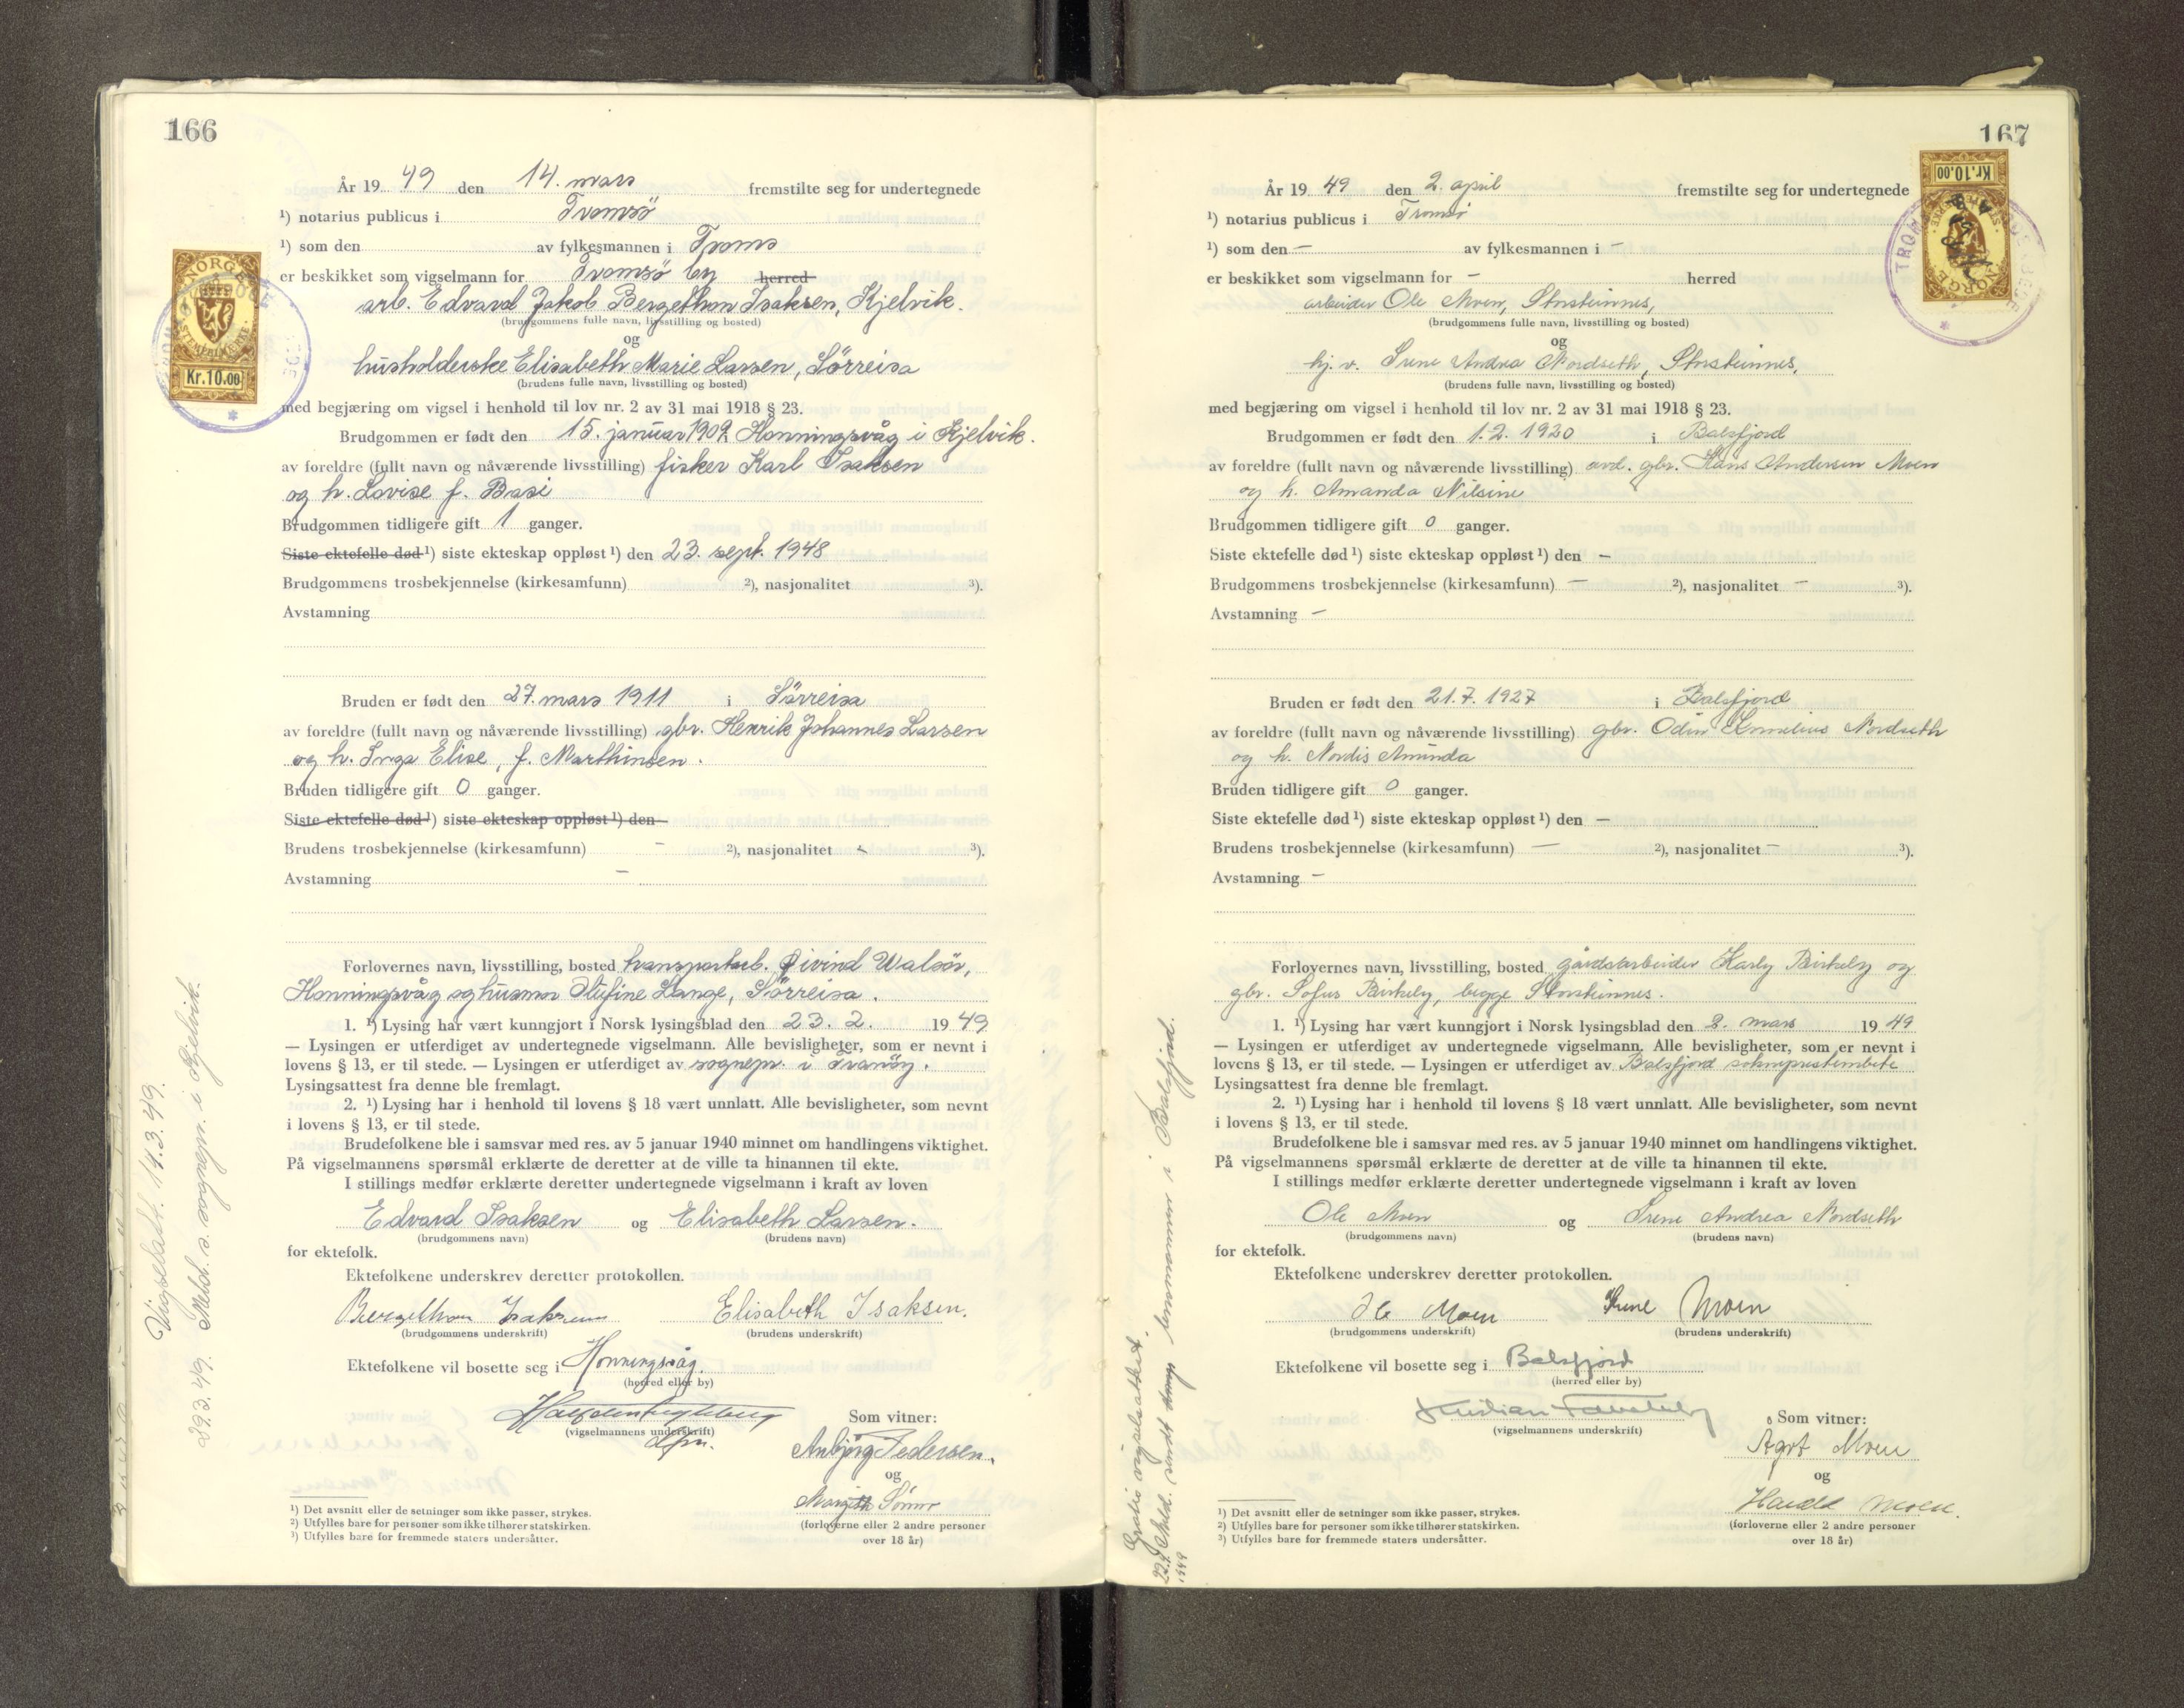 166
År 19 49 den 14. mars fremstilte seg for undertegnede
¹) notarius publicus i Tromsö
¹) som den av fylkesmannen i Troms
er beskikket som vigselmann for Tromsö by herred
arb. Edvard Jakob Bergethon Isaksen, Kjelvik.
(brudgommens fulle navn, livsstilling og bosted)
og
husholderske Elisabeth Marie Larsen, Sörreisa
(brudens fulle navn, livsstilling og bosted)
med begjæring om vigsel i henhold til lov nr. 2 av 31 mai 1918 § 23.
Brudgommen er født den 15. januar 1909 Honningsvåg i Kjelvik.
av foreldre (fullt navn og nåværende livsstilling) fisker Karl Isaksen
og h. Lovise f. Basi
Brudgommen tidligere gift 1 ganger.
Siste ektefelle død ¹) siste ekteskap oppløst ¹) den 23. sept. 1948
Brudgommens trosbekjennelse (kirkesamfunn) ²), nasjonalitet ³).
Avstamning
Bruden er født den 27. mars 1911 i Sörreisa
av foreldre (fullt navn og nåværende livsstilling) gbr. Henrik Johannes Larsen
og h. Inga Elise, f. Marthinsen.
Bruden tidligere gift 0 ganger.
Siste ektefelle død ¹) siste ekteskap oppløst ¹) den
Brudens trosbekjennelse (kirkesamfunn) - ²), nasjonalitet - ³).
Avstamning -
Forlovernes navn, livsstilling, bosted transportarb. Øivind Walsör,
Honningsvåg og husmor Stefine Lange, Sörreisa.
1. ¹) Lysing har vært kunngjort i Norsk lysingsblad den 23. 2. 19 49
— Lysingen er utferdiget av undertegnede vigselmann. Alle bevisligheter, som er nevnt i
lovens § 13, er til stede. — Lysingen er utferdiget av sognepr. i Tranöy.
Lysingsattest fra denne ble fremlagt.
2. ¹) Lysing har i henhold til lovens § 18 vært unnlatt. Alle bevisligheter, som nevnt
i lovens § 13, er til stede.
Brudefolkene ble i samsvar med res. av 5 januar 1940 minnet om handlingens viktighet.
På vigselmannens spørsmål erklærte de deretter at de ville ta hinannen til ekte.
I stillings medfør erklærte deretter undertegnede vigselmann i kraft av loven
Edvard Isaksen og Elisabeth Larsen.
(brudgommens navn) (brudens navn)
for ektefolk.
Ektefolkene underskrev deretter protokollen.
Bergethon Isaksen Elisabeth Isaksen.
(brudgommens underskrift) (brudens underskrift)
Ektefolkene vil bosette seg i Honningsvåg.
(herred eller by)
(vigselmannens underskrift)
Som vitner:
Anbjørg Pedersen.
og
Margith
(forloverne eller 2 andre personer
over 18 år)
¹) Det avsnitt eller de setninger som ikke passer, strykes.
²) Utfylles bare for personer som ikke tilhører statskirken.
³) Utfylles bare for fremmede staters undersåtter.
Vigselatt. 14.3.49.
29.3.49. Meld. s. sognepr. i Kjelvik.
NORGE
STEMPELMERKE
Kr.10.00
167
År 19 49 den 2. april fremstilte seg for undertegnede
¹) notarius publicus i Tromsö
¹) som den - av fylkesmannen i -
er beskikket som vigselmann for - herred
arbeider Ole Moen, Storsteinnes,
(brudgommens fulle navn, livsstilling og bosted)
og
hj. v. Irene Andrea Nordseth, Storsteinnes.
(brudens fulle navn, livsstilling og bosted)
med begjæring om vigsel i henhold til lov nr. 2 av 31 mai 1918 § 23.
Brudgommen er født den 1.2. 1920 i Balsfjord
av foreldre (fullt navn og nåværende livsstilling) avd. gbr. Hans Andersen Moen
og h. Amanda Nilsine
Brudgommen tidligere gift 0 ganger.
Siste ektefelle død ¹) siste ekteskap oppløst ¹) den -
Brudgommens trosbekjennelse (kirkesamfunn) - ²), nasjonalitet - ³).
Avstamning -
Bruden er født den 21.7. 1927 i Balsfjord
av foreldre (fullt navn og nåværende livsstilling) gbr. Odin Kornelius Nordseth
og h. Nordis Aminda
Bruden tidligere gift 0 ganger.
Siste ektefelle død ¹) siste ekteskap oppløst ¹) den -
Brudens trosbekjennelse (kirkesamfunn) - ²), nasjonalitet - ³).
Avstamning -
Forlovernes navn, livsstilling, bosted gårdsarbeider Karly Birkely og
gbr. Sofus Birkely, begge Storsteinnes.
1. ¹) Lysing har vært kunngjort i Norsk lysingsblad den 2. mars 19 49
— Lysingen er utferdiget av undertegnede vigselmann. Alle bevisligheter, som er nevnt i
lovens § 13, er til stede. — Lysingen er utferdiget av Balsfjord sokneprestembete
Lysingsattest fra denne ble fremlagt.
2. ¹) Lysing har i henhold til lovens § 18 vært unnlatt. Alle bevisligheter, som nevnt
i lovens § 13, er til stede.
Brudefolkene ble i samsvar med res. av 5 januar 1940 minnet om handlingens viktighet.
På vigselmannens spørsmål erklærte de deretter at de ville ta hinannen til ekte.
I stillings medfør erklærte deretter undertegnede vigselmann i kraft av loven
Ole Moen og Irene Andrea Nordseth
(brudgommens navn) (brudens navn)
for ektefolk.
Ektefolkene underskrev deretter protokollen.
Ole Moen Irene Moen
(brudgommens underskrift) (brudens underskrift)
Ektefolkene vil bosette seg i Balsfjord
(herred eller by)
(vigselmannens underskrift)
Som vitner:
Agot Moen
og
Harald Moen.
(forloverne eller 2 andre personer
over 18 år)
¹) Det avsnitt eller de setninger som ikke passer, strykes.
²) Utfylles bare for personer som ikke tilhører statskirken.
³) Utfylles bare for fremmede staters undersåtter.
Gratis vigselsattest.
22.4. Meld. sendt lensmannen i Balsfjord.
1949
NORGE
Kr.10.00